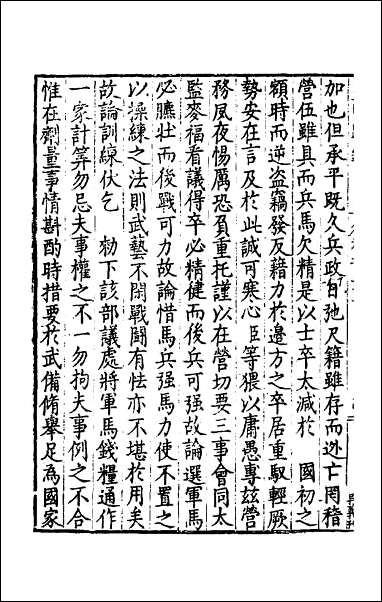 加也但承平既久兵政日弛尺籍雖存而逃亡罔稽
營伍雖具而兵馬欠精是以士卒太減於　國初之
額時而逆盗竊發反藉力於邊方之卒居重馭輕厥
勢安在言及於此誠可寒心臣等猥以庸愚專兹營
務夙夜惕厲恐負重托謹以在營切要三事會同太
監麥福看議得卒必精健而後兵可强故論選軍馬
必臕壮而後戰可力故論惜馬兵强馬力使不置之
以操練之法則武藝不閑戰鬪有怯亦不堪於用矣
故論訓練伏乞　勑下該部議處將軍馬錢糧通作
一家計筭勿忌夫事權之不一勿拘夫事例之不合
惟在劑量事情斟酌時措要於武備脩舉足為國家